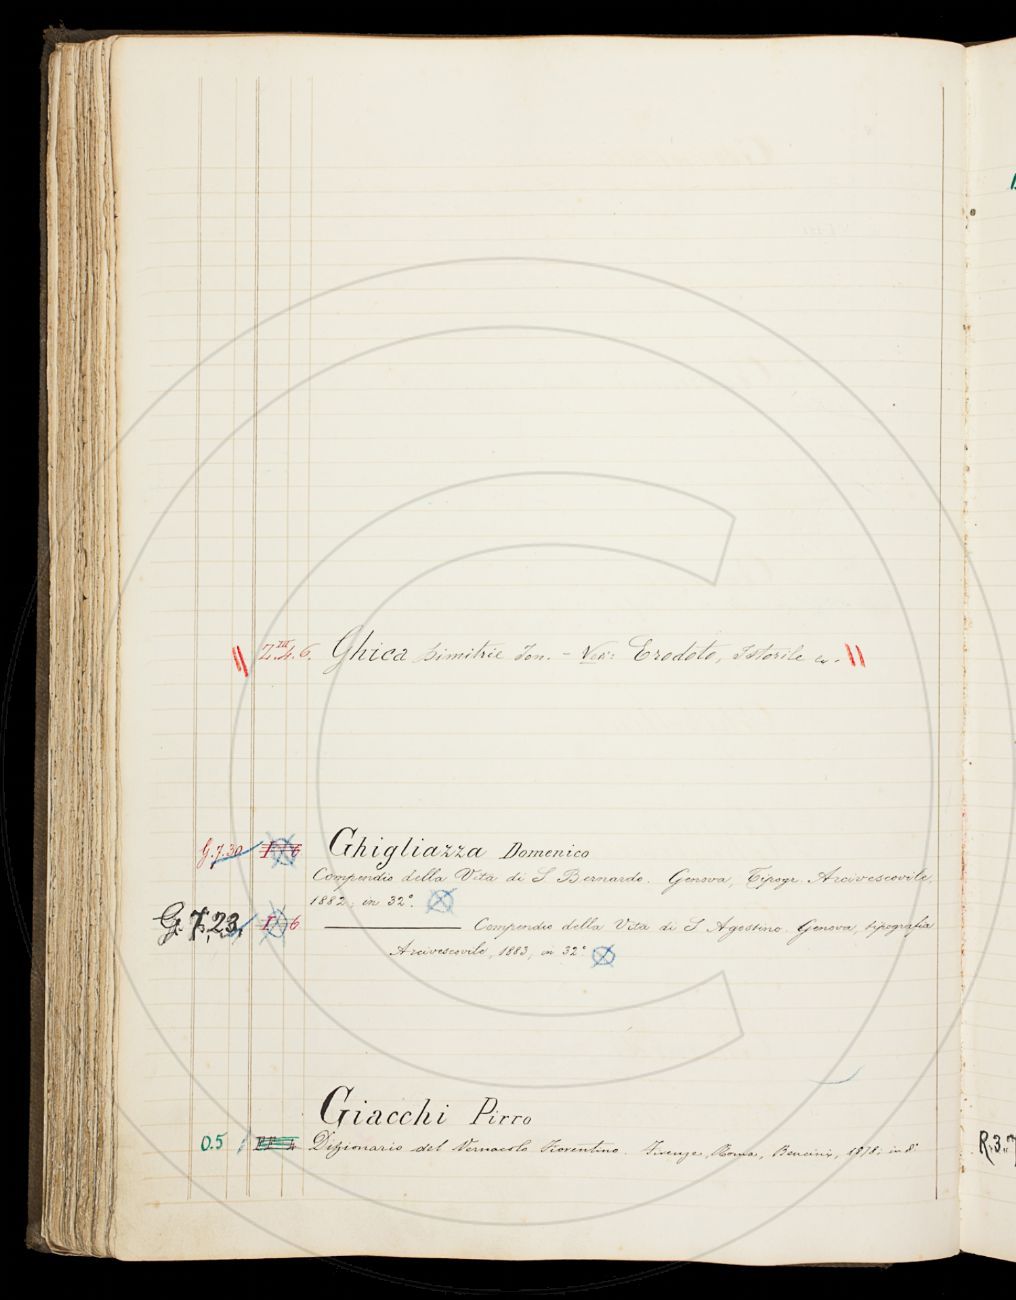 Z.III.4.6. Ghica Dimitrie Ion. - Ved: Erodoto, Istorile
G.7.30 Ghigliazza Domenico
Compendio della Vita di S Bernardo. Genova, Tipogr. Arcivescovile,
1882, in 32°.
G.7,23, Compendio della Vita di S Agostino. Genova, tipografia
Arcivescovile, 1883, in 32°.
Giacchi Pirro
0.5 Dizionario del Vernacolo Fiorentino. Firenze, Roma, Bencini, 1878. in 8°
R.3.